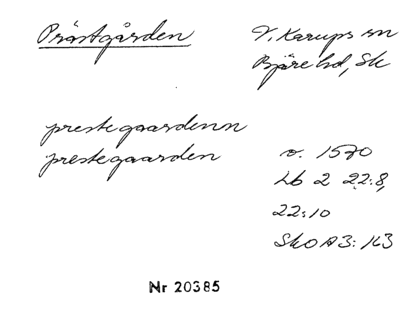 Prästgården
V. Karups sn
Bjäre hd, Sk
prestegaardenn
prestegaarden
o. 1570
Lb 2 22:8,
22:10
SkOA3: 163
Nr 20385